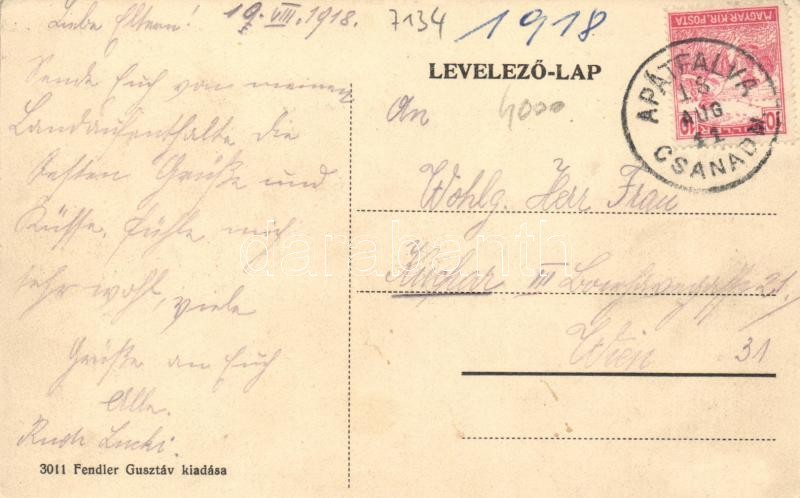 Liebe Eltern! 19. VIII. 1918.
7134
1918
Sende Euch von meinem
Landaufenthalte die
besten Grüße und
Küsse. Fühle mich
sehr wohl, viele
Grüße an Euch
Alle.
LEVELEZŐ-LAP
An
4000
Wohlg. Herr Frau
III 21/
Wien 31
MAGYAR KIR. POSTA
10 FILLÉR 10
APÁTFALVA
18
AUG
CSANÁD M
darabanth
3011 Fendler Gusztáv kiadása